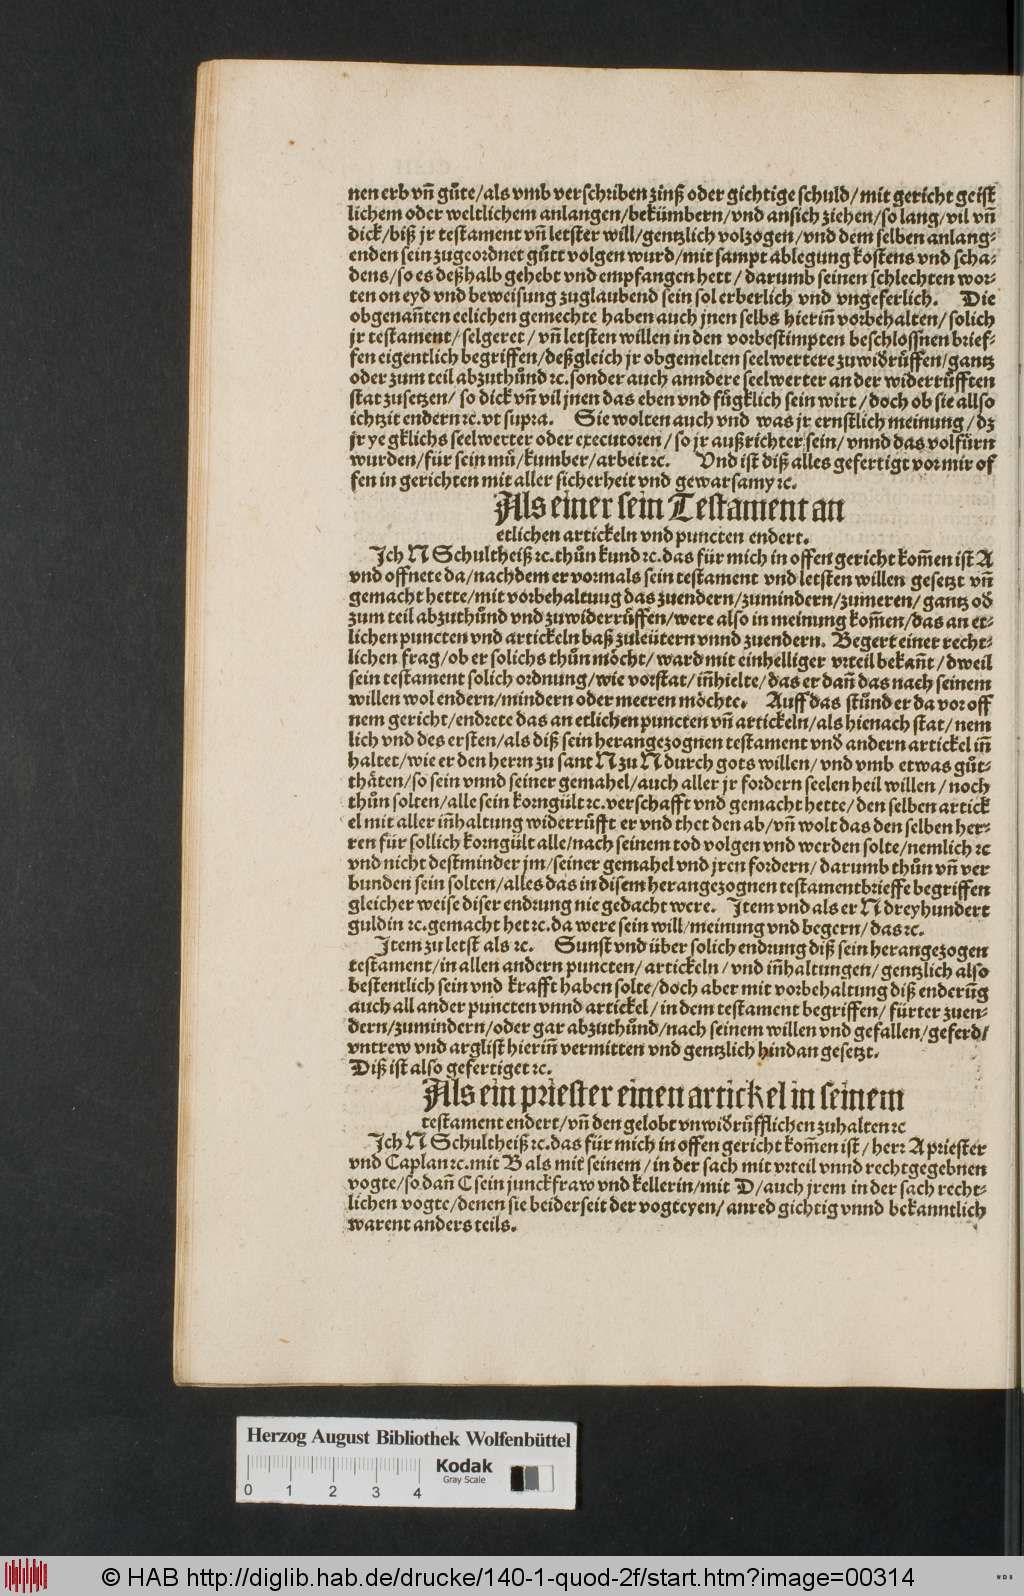 nen erb vñ gůte/als vmb verschriben zinß oder gichtige schuld/mit gericht geist
lichem oder weltlichem anlangen/bekümbern/vnd an sich ziehen/so lang/vil vñ
dick/biß jr testament vñ letster will/gentzlich volzogen/vnd dem selben anlang⸗
enden sein zugeordnet gůtt volgen wurd/mit sampt ablegung kostens vnd scha⸗
dens/so es deßhalb gehebt vnd empfangen hett/ darumb seinen schlechten wor⸗
ten on eyd vnd beweisung zuglaubend sein sol erberlich vnd vngeferlich. Die
obgenañten eelichen gemechte haben auch jnen selbs hieriñ vorbehalten/ solich
jr testament/ selgeret/ vñ letsten willen in den vorbestimpten beschlossnen brief⸗
fen eigentlich begriffen/deßgleich jr obgemelten seelwertere zuwiđrůffen/gantz
oder zum teil abzuthůnd ꝛc. sonder auch anndere seelwerter an der widerrůfften
stat zusetzen/ so dick vñ vil jnen das eben vnd fůgklich sein wirt/doch ob sie allso
ichtzit endern ꝛc. vt supra. Sie wolten auch vnd was jr ernstlich meinung/dz
jr yegklichs seelwerter oder executoren/so jr außrichter sein/vnnd das volfürn
wurden/für sein mů/kumber/arbeit ꝛc. Vnd ist diß alles gefertigt vor mir of
fen in gerichten mit aller sicherheit vnd gewarsamy ꝛc.
Als einer sein Testament an
etlichen artickeln vnd puncten endert.
Ich N Schultheiß ꝛc. thůn kund ꝛc. das für mich in offen gericht kom̃en ist A
vnd offnete da/nachdem er vormals sein testament vnd letsten willen gesetzt vñ
gemacht hette/mit vorbehaltung das zuendern/zumindern/zumeren/ gantz ođ
zum teil abzuthůnd vnd zuwiderrůffen/were also in meinung kom̃en/das an et⸗
lichen puncten vnd artickeln baß zuleütern vnnd zuendern. Begert einer recht⸗
lichen frag/ob er solichs thůn möcht/ ward mit einhelliger vrteil bekañt/dweil
sein testament solich ordnung/wie vorstat/iñhielte/das er dañ das nach seinem
willen wol endern/mindern oder meeren möchte. Auff das stůnd er da vor off
nem gericht/endrete das an etlichen puncten vñ artickeln/als hienach stat/nem
lich vnd des ersten/als diß sein herangezognen testament vnđ andern artickel iñ
haltet/wie er den herrn zu sant N zu N durch gots willen/vnd vmb etwas gůt⸗
thäten/so sein vnnd seiner gemahel/auch aller jr fordern seelen heil willen/noch
thůn solten/alle sein korngült ꝛc. verschafft vnd gemacht hette/den selben artick
el mit aller iñhaltung widerrůfft er vnd thet den ab/vñ wolt das den selben her⸗
ren für sollich korngült alle/nach seinem tod volgen vnd werden solte/nemlich ꝛc
vnd nicht destminder jm/seiner gemahel vnd jren fordern/ darumb thůn vñ ver
bunden sein solten/alles das in disem herangezognen testamentbrieffe begriffen
gleicher weise diser endrung nie gedacht were. Item vnd als er N dreyhundert
guldin ꝛc. gemacht het ꝛc. da were sein will/meinung vnd begern/das ꝛc.
Item zu letst als ꝛc. Sunst vnd über solich endrung diß sein herangezogen
testament/in allen andern puncten/artickeln/vnd iñhaltungen/gentzlich also
bestentlich sein vnd krafft haben solte/doch aber mit vorbehaltung diß enderũg
auch all ander puncten vnnd artickel/in dem testament begriffen/fürter zuen⸗
dern/zumindern/oder gar abzuthůnd/nach seinem willen vnd gefallen/geferd/
vntrew vnd arglist hieriñ vermitten vnd gentzlich hindan gesetzt.
Diß ist also gefertiget ꝛc.
Als ein priester einen artickel in seinem
testament endert/vñ den gelobt vnwiđrůfflichen zuhalten ꝛc
Ich N Schultheiß ꝛc. das für mich in offen gericht kom̃en ist/herr A priester
vnd Caplan ꝛc. mit B als mit seinem/in der sach mit vrteil vnnd recht gegebnen
vogte/so dañ C sein junckfraw vnd kellerin/mit D/auch jrem in der sach recht⸗
lichen vogte/denen sie beiderseit der vogteyen/anred gichtig vnnd bekanntlich
warent anders teils.
Herzog August Bibliothek Wolfenbüttel
Kodak
Gray Scale
0 1 2 3 4
© HAB http://diglib.hab.de/drucke/140-1-quod-2f/start.htm?image=00314